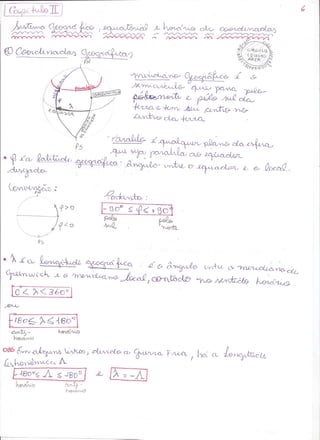 Capítulo II
Sistema Geográfico, equatorial e horário de coordenadas
① Coordenadas Geográficas
PN
meridiano Geográfico é o
semicírculo que passa pelo
polo norte e pelo sul da
terra e tem seu centro no
centro da terra
EQUADOR
PS
paralelo é qualquer plano da esfera
que seja paralelo ao equador
• φ é a latitude geográfica: ângulo entre o equador e o local
desejado
Convenção:
φ>0
φ<0
PS
Portanto:
-90° ≤ φ ≤ +90°
polo sul
polo norte
• λ é a longitude geográfica: é o ângulo entre o meridiano de
Greenwich e o meridiano local, contado no sentido horário
0 ≤ λ ≤ 360°
ou
-180° ≤ λ ≤ 180°
anti-horário
horário
OBS: Em alguns livros, devido a Guerra Fria, há a longitude
astronômica Λ
-180° ≤ Λ ≤ 180° e λ = -Λ
horário
anti-horário
6